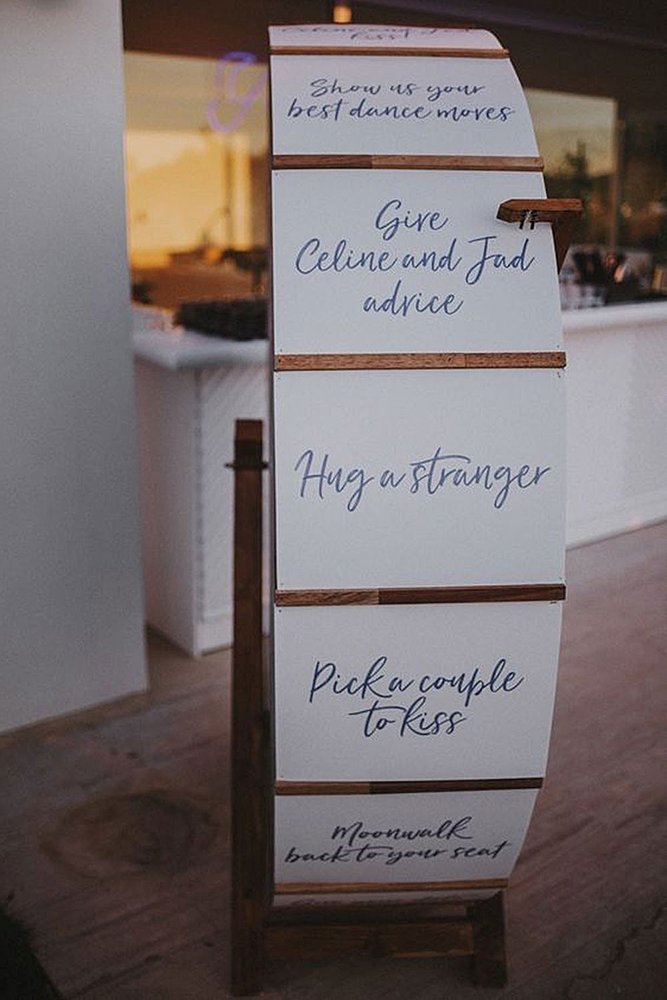 Celine and Jad
kiss!
Show us your
best dance moves
Give
Celine and Jad
advice
Hug a stranger
Pick a couple
to kiss
Moonwalk
back to your seat